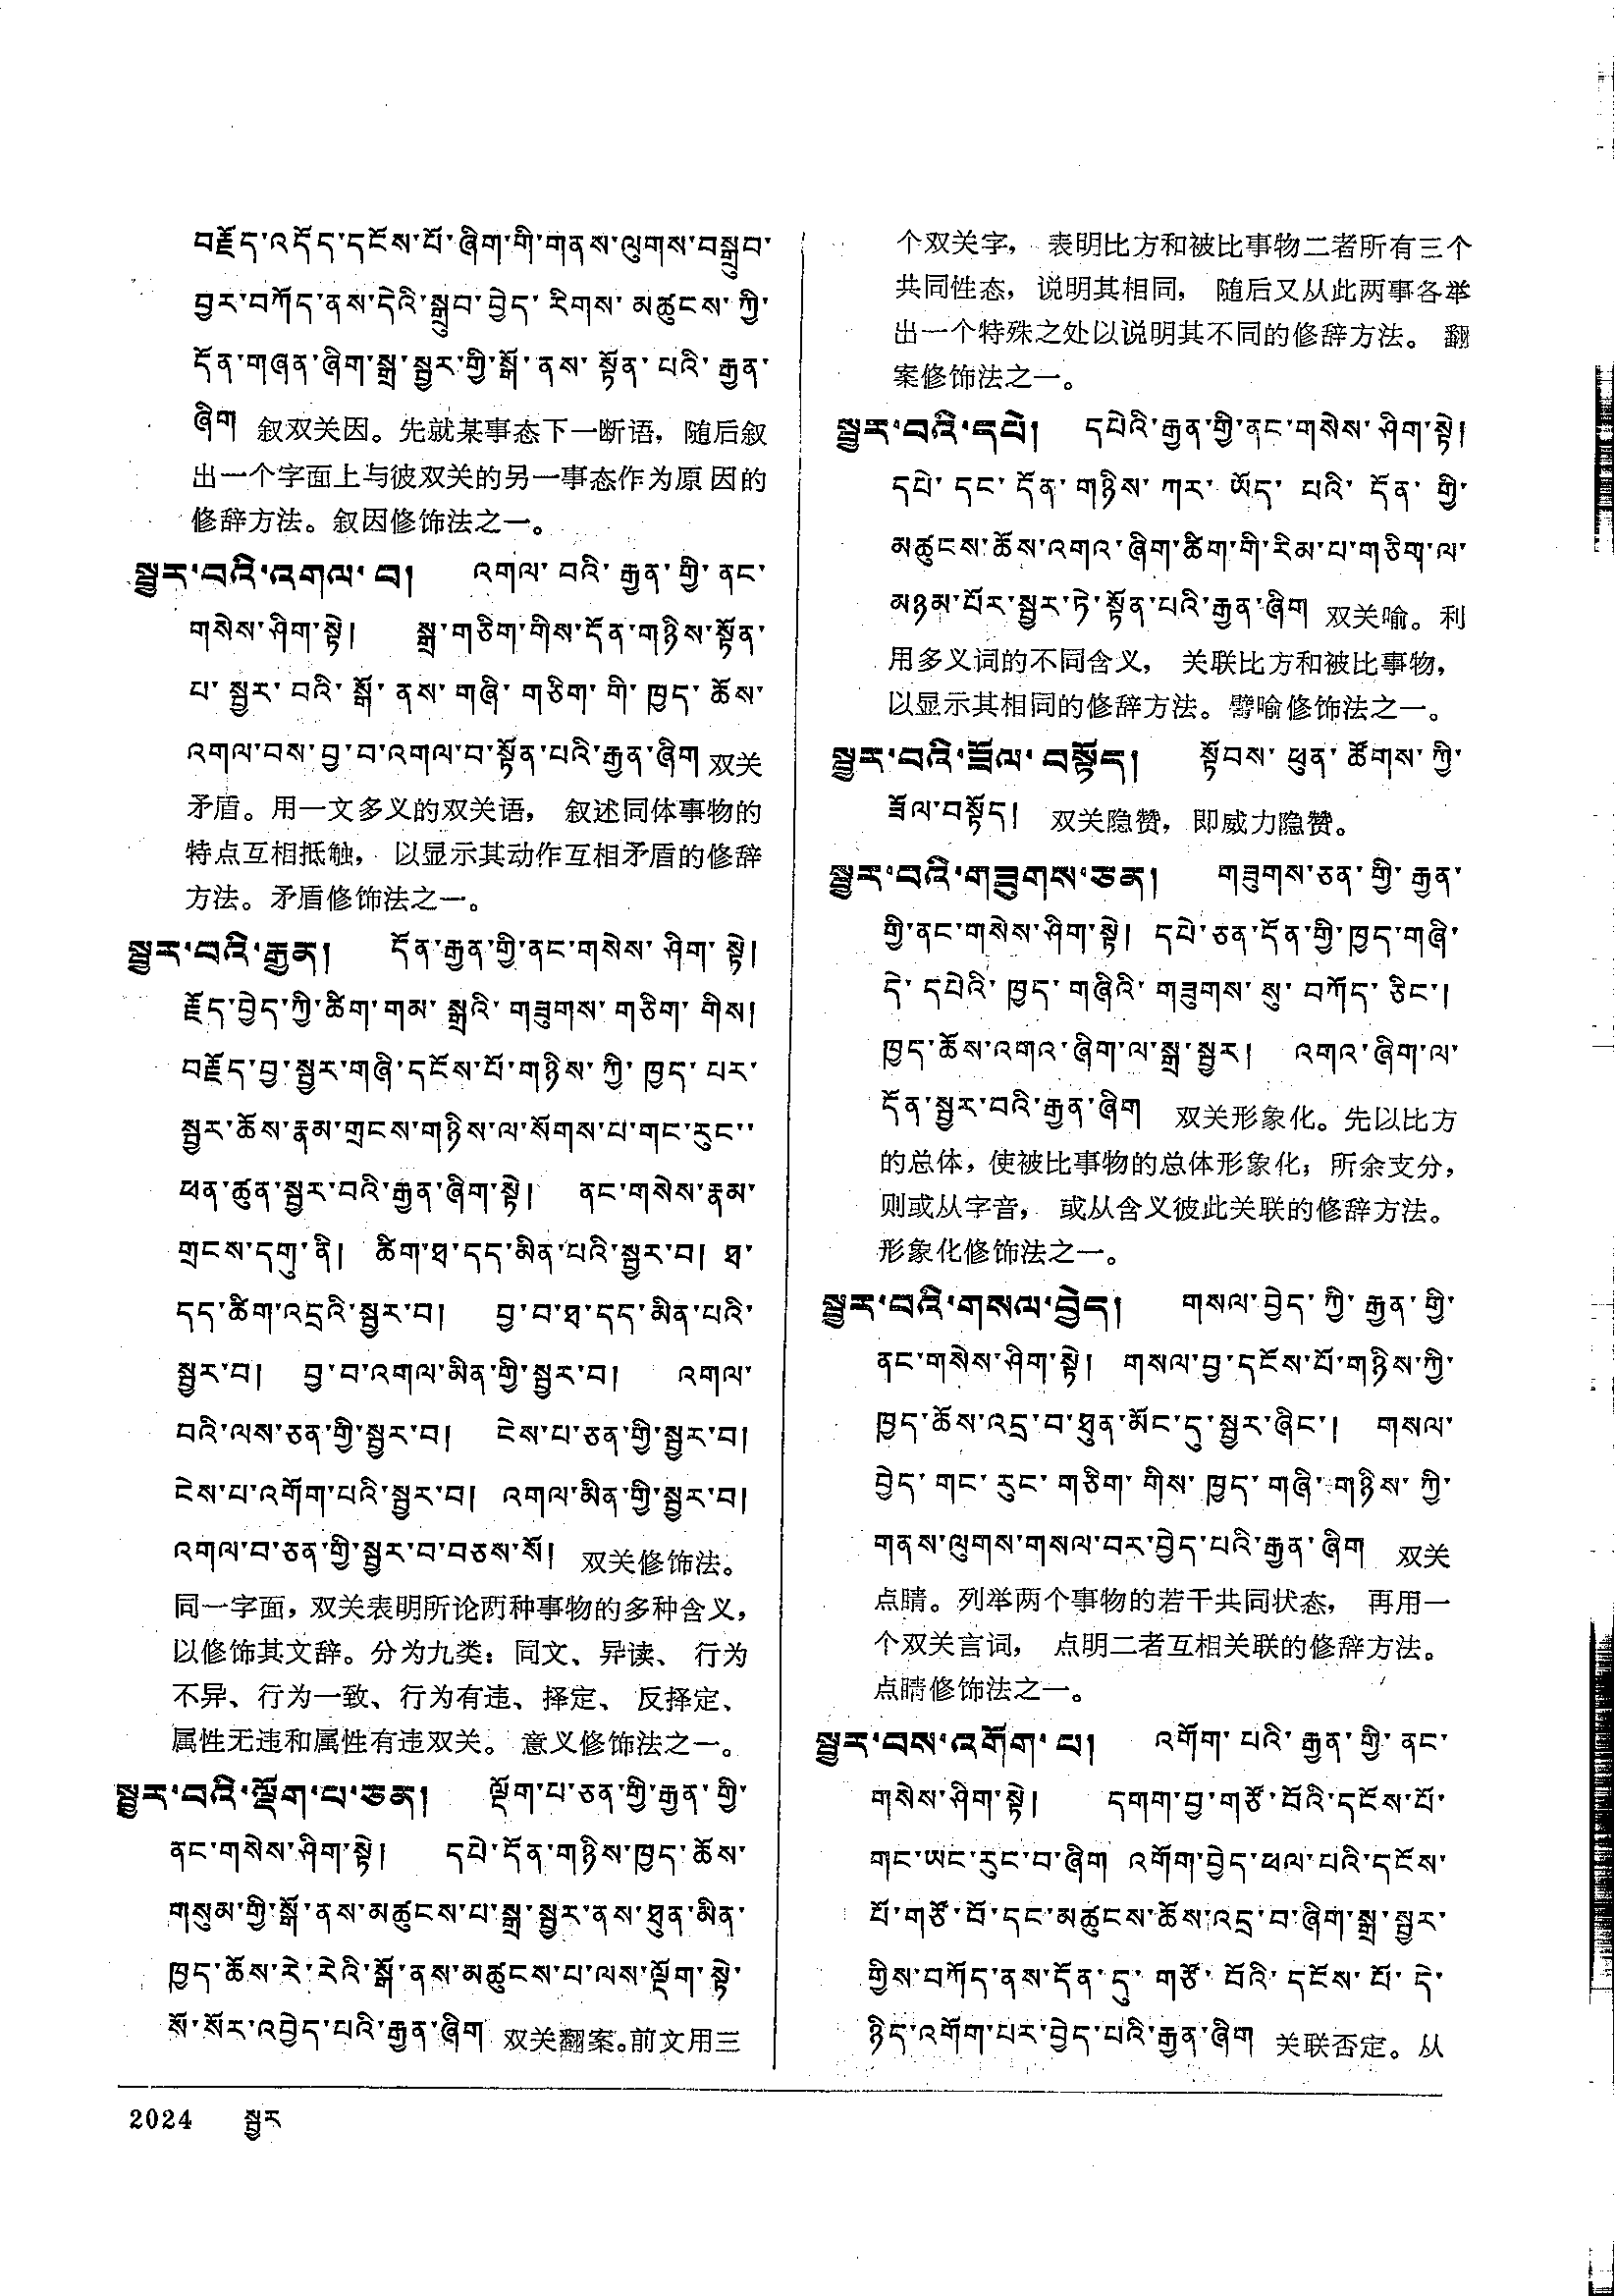 བརྗོད་འདོད་དངོས་པོ་ཞིག་གི་གནས་ལུགས་བསྒྲུབ་
བྱར་བཀོད་ནས་དེའི་སྒྲུབ་བྱེད་རིགས་མཚུངས་ཀྱི་
དོན་གཞན་ཞིག་སྒྲ་སྦྱར་གྱི་སྒོ་ནས་སྟོན་པའི་རྒྱན་
ཞིག 叙双关因。先就某事态下一断语，随后叙
出一个字面上与彼双关的另一事态作为原因的
修辞方法。叙因修饰法之一。
སྦྱར་བའི་འགལ་བ། འགལ་བའི་རྒྱན་གྱི་ནང་
གསེས་ཤིག་སྟེ། སྒྲ་གཅིག་གིས་དོན་གཉིས་སྟོན་
པ་སྦྱར་བའི་སྒོ་ནས་གཞི་གཅིག་གི་ཁྱད་ཆོས་
འགལ་བས་བྱ་བ་འགལ་བ་སྟོན་པའི་རྒྱན་ཞིག 双关
矛盾。用一文多义的双关语，叙述同体事物的
特点互相抵触，以显示其动作互相矛盾的修辞
方法。矛盾修饰法之一。
སྦྱར་བའི་རྒྱན། དོན་རྒྱན་གྱི་ནང་གསེས་ཤིག་སྟེ།
རྗོད་བྱེད་ཀྱི་ཚིག་གམ་སྒྲའི་གཟུགས་གཅིག་གིས།
བརྗོད་བྱ་སྦྱར་གཞི་དངོས་པོ་གཉིས་ཀྱི་ཁྱད་པར་
སྦྱར་ཆོས་རྣམ་གྲངས་གཉིས་ལ་སོགས་པ་གང་རུང་་
ཕན་ཚུན་སྦྱར་བའི་རྒྱན་ཞིག་སྟེ། ནང་གསེས་རྣམ་
གྲངས་དགུ་ནི། ཚིག་ཐ་དད་མིན་པའི་སྦྱར་བ། ཐ་
དད་ཚིག་འདྲའི་སྦྱར་བ། བྱ་བ་ཐ་དད་མིན་པའི་
སྦྱར་བ། བྱ་བ་འགལ་མིན་གྱི་སྦྱར་བ། འགལ་
བའི་ལས་ཅན་གྱི་སྦྱར་བ། ངེས་པ་ཅན་གྱི་སྦྱར་བ།
ངེས་པ་འགོག་པའི་སྦྱར་བ། འགལ་མིན་གྱི་སྦྱར་བ།
འགལ་བ་ཅན་གྱི་སྦྱར་བ་བཅས་སོ། 双关修饰法。
同一字面，双关表明所论两种事物的多种含义，
以修饰其文辞。分为九类：同文、异读、行为
不异、行为一致、行为有违、择定、反择定、
属性无违和属性有违双关。意义修饰法之一。
སྦྱར་བའི་ལྡོག་པ་ཅན། ལྡོག་པ་ཅན་གྱི་རྒྱན་གྱི་
ནང་གསེས་ཤིག་སྟེ། དཔེ་དོན་གཉིས་ཁྱད་ཆོས་
གསུམ་གྱི་སྒོ་ནས་མཚུངས་པ་སྒྲ་སྦྱར་ནས་ཐུན་མིན་
ཁྱད་ཆོས་རེ་རེའི་སྒོ་ནས་མཚུངས་པ་ལས་ལྡོག་སྟེ་
སོ་སོར་འབྱེད་པའི་རྒྱན་ཞིག 双关翻案。前文用三
个双关字，表明比方和被比事物二者所有三个
共同性态，说明其相同，随后又从此两事各举
出一个特殊之处以说明其不同的修辞方法。翻
案修饰法之一。
སྦྱར་བའི་དཔེ། དཔེའི་རྒྱན་གྱི་ནང་གསེས་ཤིག་སྟེ།
དཔེ་དང་དོན་གཉིས་ཀར་ཡོད་པའི་དོན་གྱི་
མཚུངས་ཆོས་འགའ་ཞིག་ཚིག་གི་རིམ་པ་གཅིག་ལ་
མཉམ་པོར་སྦྱར་ཏེ་སྟོན་པའི་རྒྱན་ཞིག 双关喻。利
用多义词的不同含义，关联比方和被比事物，
以显示其相同的修辞方法。譬喻修饰法之一。
སྦྱར་བའི་ཟོལ་བསྟོད། སྟོབས་ཕུན་ཚོགས་ཀྱི་
ཟོལ་བསྟོད། 双关隐赞，即威力隐赞。
སྦྱར་བའི་གཟུགས་ཅན། གཟུགས་ཅན་གྱི་རྒྱན་
གྱི་ནང་གསེས་ཤིག་སྟེ། དཔེ་ཅན་དོན་གྱི་ཁྱད་གཞི་
དེ་དཔེའི་ཁྱད་གཞིའི་གཟུགས་སུ་བཀོད་ཅིང་།
ཁྱད་ཆོས་འགའ་ཞིག་ལ་སྒྲ་སྦྱར། འགའ་ཞིག་ལ་
དོན་སྦྱར་བའི་རྒྱན་ཞིག 双关形象化。先以比方
的总体，使被比事物的总体形象化；所余支分，
则或从字音，或从含义彼此关联的修辞方法。
形象化修饰法之一。
སྦྱར་བའི་གསལ་བྱེད། གསལ་བྱེད་ཀྱི་རྒྱན་གྱི་
ནང་གསེས་ཤིག་སྟེ། གསལ་བྱ་དངོས་པོ་གཉིས་ཀྱི་
ཁྱད་ཆོས་འདྲ་བ་ཐུན་མོང་དུ་སྦྱར་ཞིང་། གསལ་
བྱེད་གང་རུང་གཅིག་གིས་ཁྱད་གཞི་གཉིས་ཀྱི་
གནས་ལུགས་གསལ་བར་བྱེད་པའི་རྒྱན་ཞིག 双关
点睛。列举两个事物的若干共同状态，再用一
个双关言词，点明二者互相关联的修辞方法。
点睛修饰法之一。
སྦྱར་བས་འགོག་པ། འགོག་པའི་རྒྱན་གྱི་ནང་
གསེས་ཤིག་སྟེ། དགག་བྱ་གཙོ་བོའི་དངོས་པོ་
གང་ཡང་རུང་བ་ཞིག འགོག་བྱེད་ཕལ་པའི་དངོས་
པོ་གཙོ་བོ་དང་མཚུངས་ཆོས་འདྲ་བ་ཞིག་སྒྲ་སྦྱར་
གྱིས་བཀོད་ནས་དོན་དུ་གཙོ་བོའི་དངོས་པོ་དེ་
ཉིད་འགོག་པར་བྱེད་པའི་རྒྱན་ཞིག 关联否定。从
2024 སྦྱར